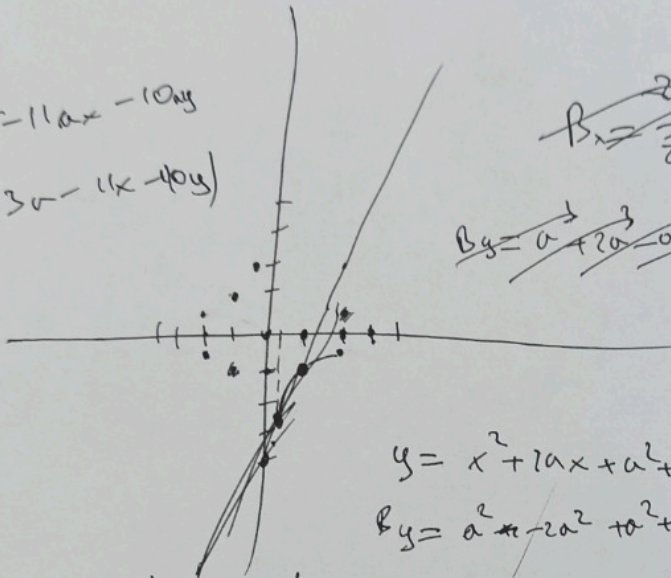 -11ax - 10ay
3a - 11x - 10y)
By = a³ + 2a³ - a
y = x² + 2ax + a² +
By = a² - 2a² + a² +